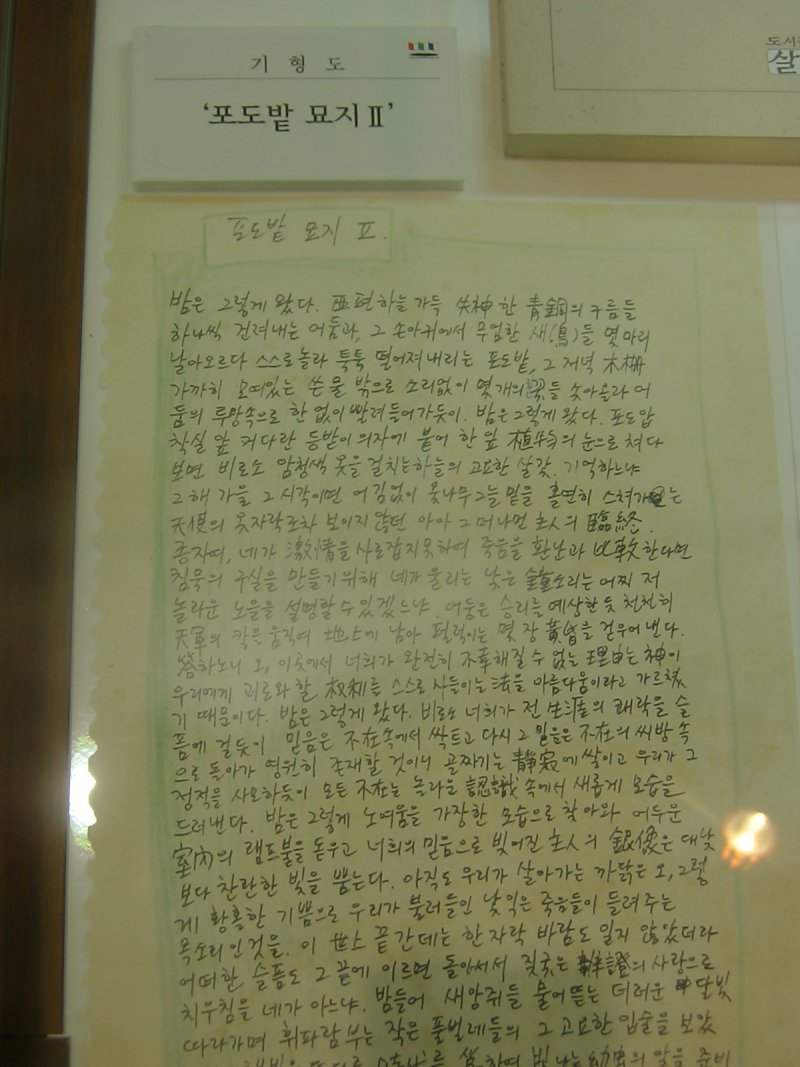 기 형 도
‘포도밭 묘지 II’
도서
살
포도밭 묘지 II.
밤은 그렇게 왔다. 亞편하늘 가득 失神한 靑銅의 구름들
하나씩 건져내는 어둠과, 그 손아귀에서 무엄한 새(鳥)들 몇 마리
날아오르다 스스로 놀라 툭툭 떨어져내리는 포도밭, 그 저녁 木柵
가까히 모여있는 쓴 물 밖으로 소리없이 몇개의 꽃들 솟아올라 어
둠의 루망속으로 한 없이 빨려들어가듯이. 밤은 그렇게 왔다. 포도압
착실 앞 커다란 등받이의자에 붙어 한 잎 植物의 눈으로 쳐다
보면 비로소 암청색 옷을 걸치는 하늘의 고요한 살갗. 기억하느냐
그 해 가을 그 시각이면 어김없이 옻나무 그늘 밑을 홀연히 스쳐가는
天使의 옷자락조차 보이지 않던 아아 그 머나먼 主人의 臨終.
종자여, 네가 激情을 사로잡지 못하여 죽음을 환난과 比較한다면
침묵의 구실을 만들기 위해 네가 울리는 낮은 鐘소리는 어찌 저
놀라운 노을을 설명할 수 있겠느냐. 어둠은 승리를 예상한 듯 천천히
天軍의 칼을 움직여 地上에 남아 펄럭이는 몇 장 黃昏을 걷우어 낸다.
答하노니 오, 이곳에서 너희가 완전히 不幸해질 수 없는 理由는 神이
우리에게 괴로와 할 权利를 스스로 사들이는 法을 아름다움이라고 가르쳤
기 때문이다. 밤은 그렇게 왔다. 비로소 너희가 전 生涯의 쾌락을 슬
픔에 걸듯이 믿음은 不在속에서 싹트고 다시 그 믿음은 不在의 씨방 속
으로 돌아가 영원히 존재할 것이니 골짜기는 靜寂에 쌓이고 우리가 그
정적을 사모하듯이 모든 不在는 놀라운 認識 속에서 새롭게 모습을
드러낸다. 밤은 그렇게 노여움을 가장한 모습으로 찾아와 어두운
室內의 램프불을 돋우고 너희의 믿음으로 빚어진 主人의 銀像은 대낮
보다 찬란한 빛을 뿜는다. 아직도 우리가 살아가는 까닭은 오, 그렇
게 황홀한 기쁨으로 우리가 불러들인 낯익은 죽음들이 들려주는
목소리인 것을. 이 世上 끝간데는 한 자락 바람도 일지 않았더라
어떠한 슬픔도 그 끝에 이르면 돌아서서 짖궂은 辨證의 사랑으로
치우침을 네가 아느냐. 밤들어 새앙쥐들 물어뜯는 더러운 달빛
따라가며 휘파람 부는 작은 풀벌레들의 그 고요한 입술을 보았